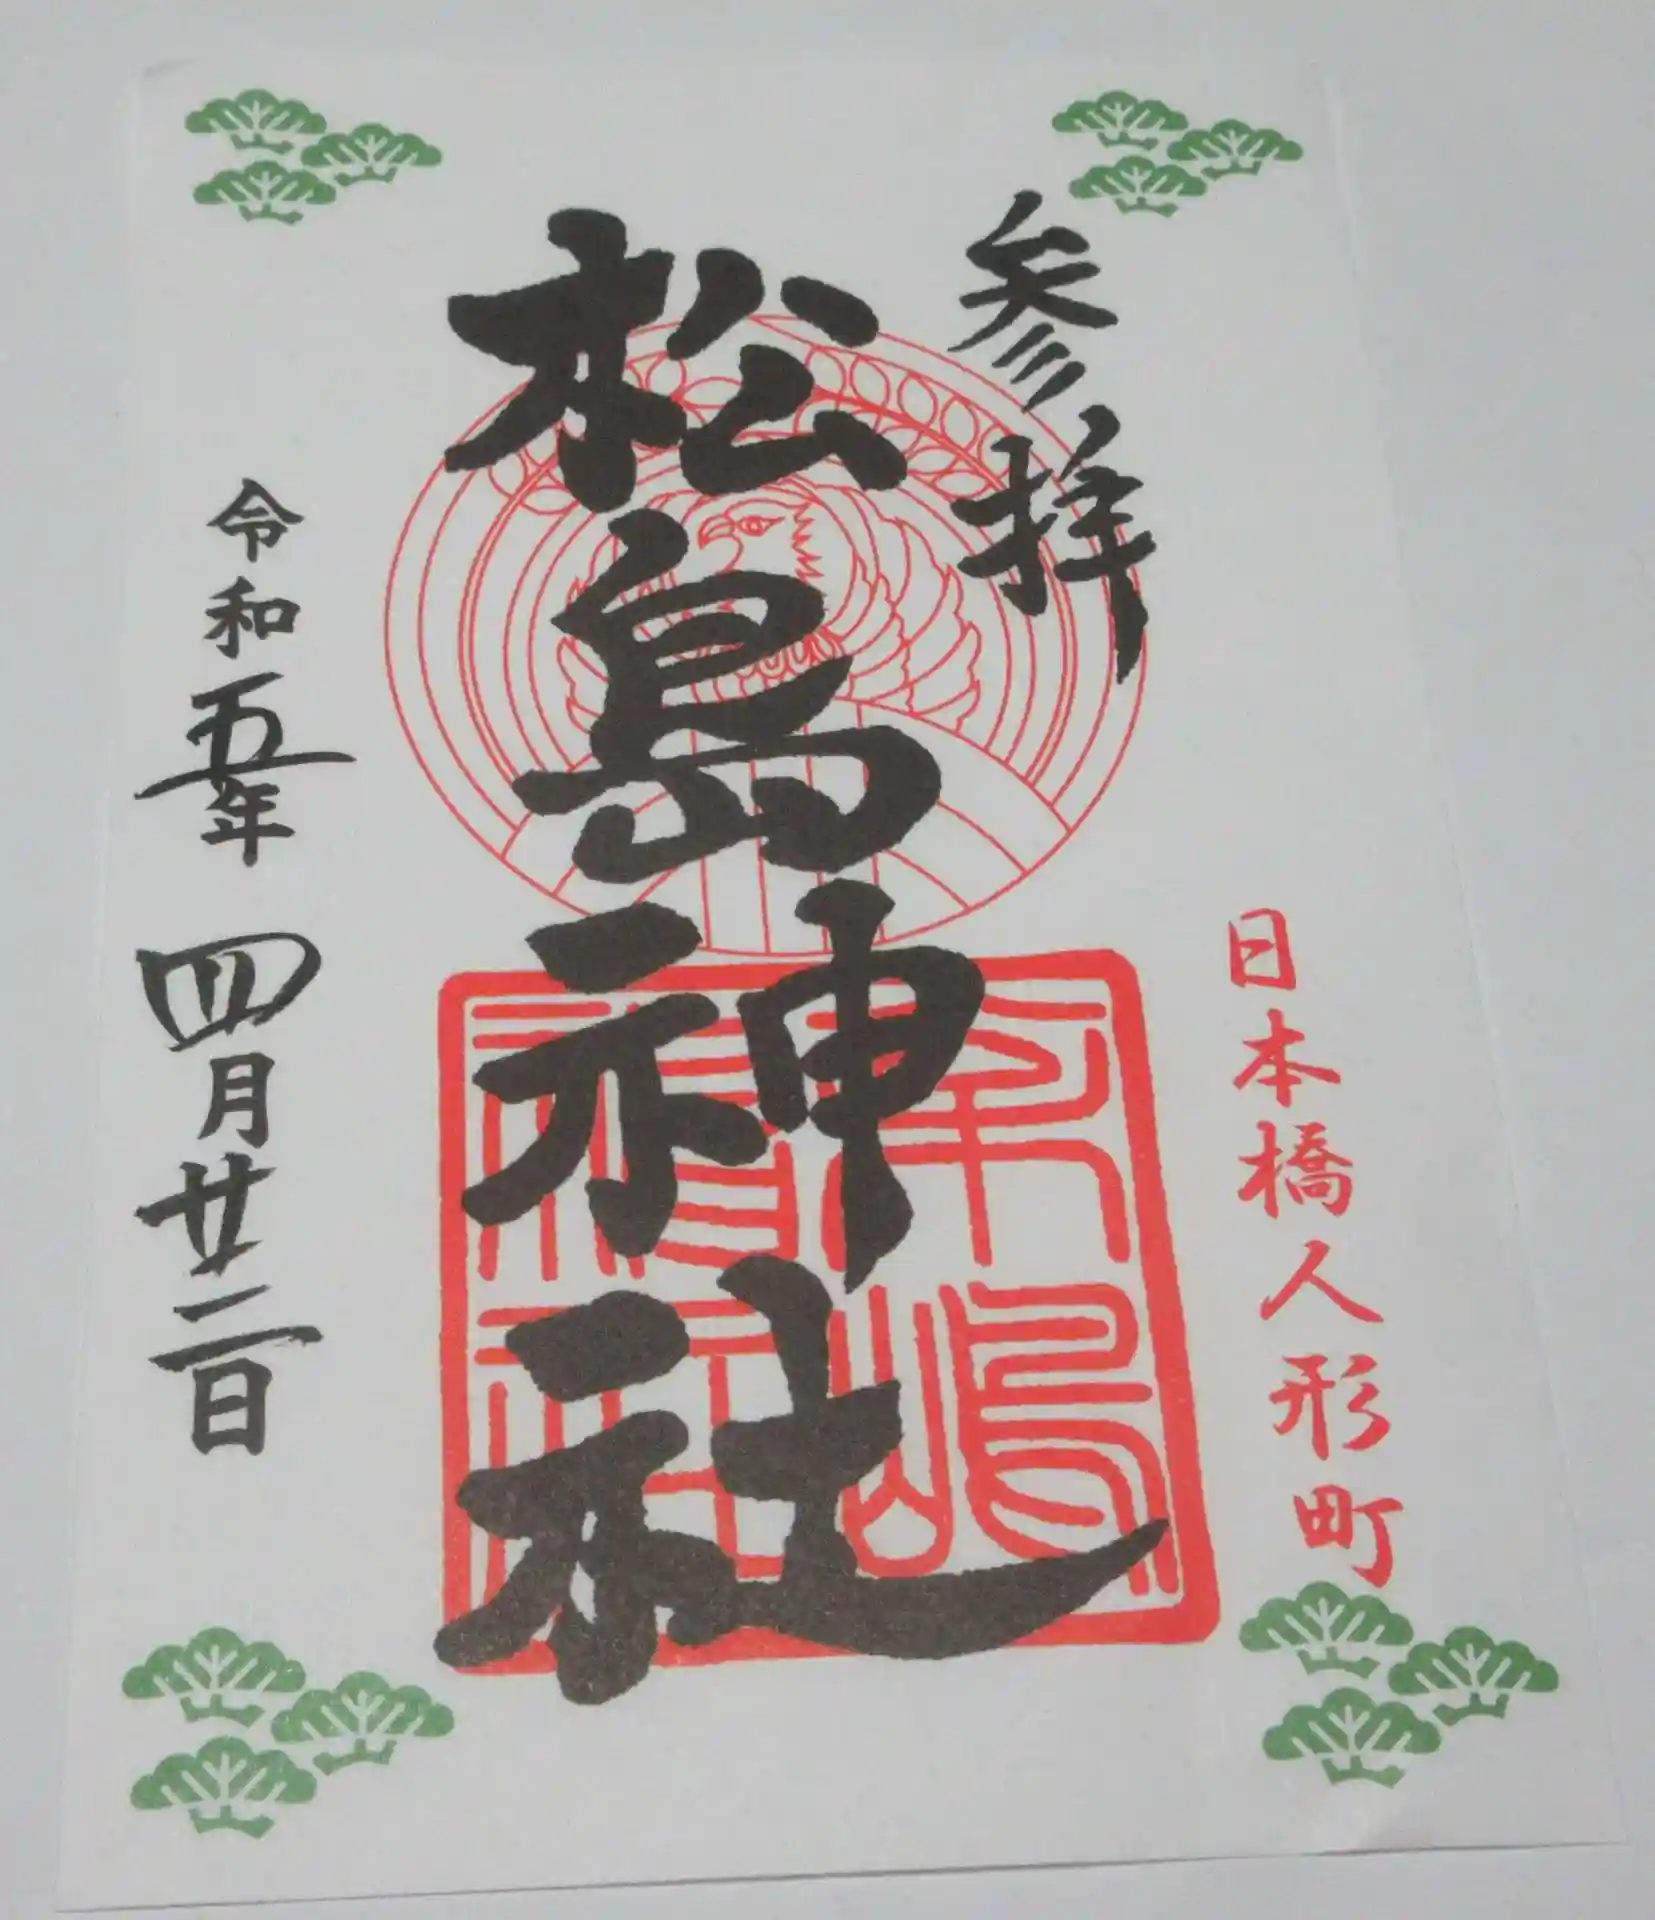 参拝
日本橋人形町
松島神社
令和五年 四月廿二日